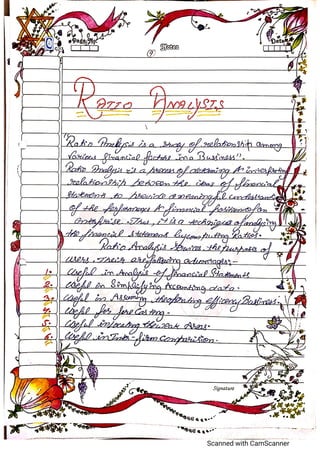 Notes
Date
RATIO ANALYSIS
"Ratio Analysis is a study of relationship among
various financial factors in a Business".
Ratio Analysis is a process of determining & interpreting
relationship between the items of financial
statements to provide a meaningful understanding
of the performance & financial position of an
Enterprise. This is a technique of analysing
the financial statement by computing Ratios.
Ratio Analysis serves the purpose of
users. There are following advantages:-
1. Useful in Analysis of financial Statements
2. Useful in Simplifying Accounting data.
3. Useful in Assessing the operating efficiency Business.
4. Useful for fore Casting.
5. Useful in locating the weak Areas.
6. Useful in Inter-firm Comparision.
Signature
Scanned with CamScanner